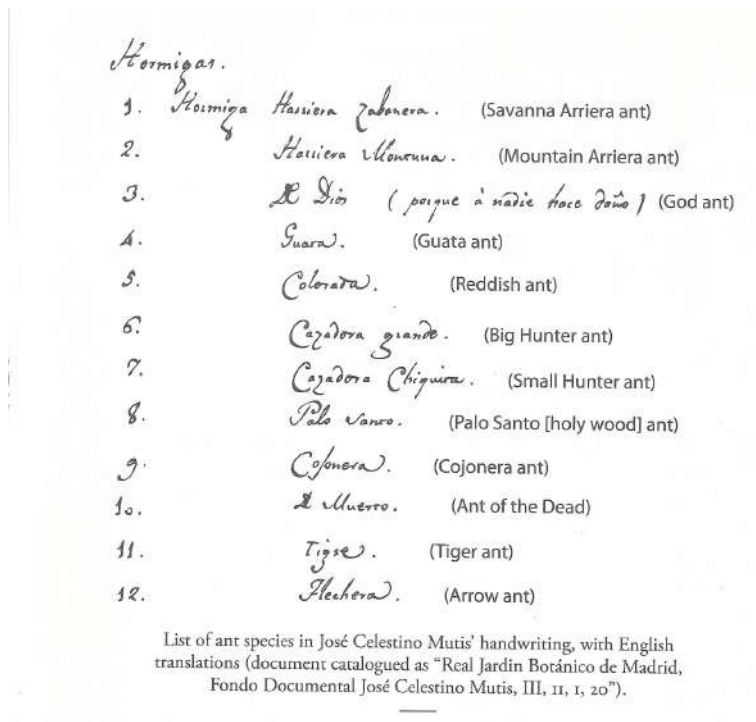 Hormigas.
1. Hormiga Harriera Zabanera. (Savanna Arriera ant)
2. Harriera Montuna. (Mountain Arriera ant)
3. De Dios (porque à nadie hace daño) (God ant)
4. Guata. (Guata ant)
5. Colorada. (Reddish ant)
6. Cazadora grande. (Big Hunter ant)
7. Cazadora Chiquita. (Small Hunter ant)
8. Palo Santo. (Palo Santo [holy wood] ant)
9. Cojonera. (Cojonera ant)
10. de Muerto. (Ant of the Dead)
11. Tigre. (Tiger ant)
12. Flechera. (Arrow ant)
List of ant species in José Celestino Mutis' handwriting, with English
translations (document catalogued as "Real Jardin Botánico de Madrid,
Fondo Documental José Celestino Mutis, III, 11, 1, 20").